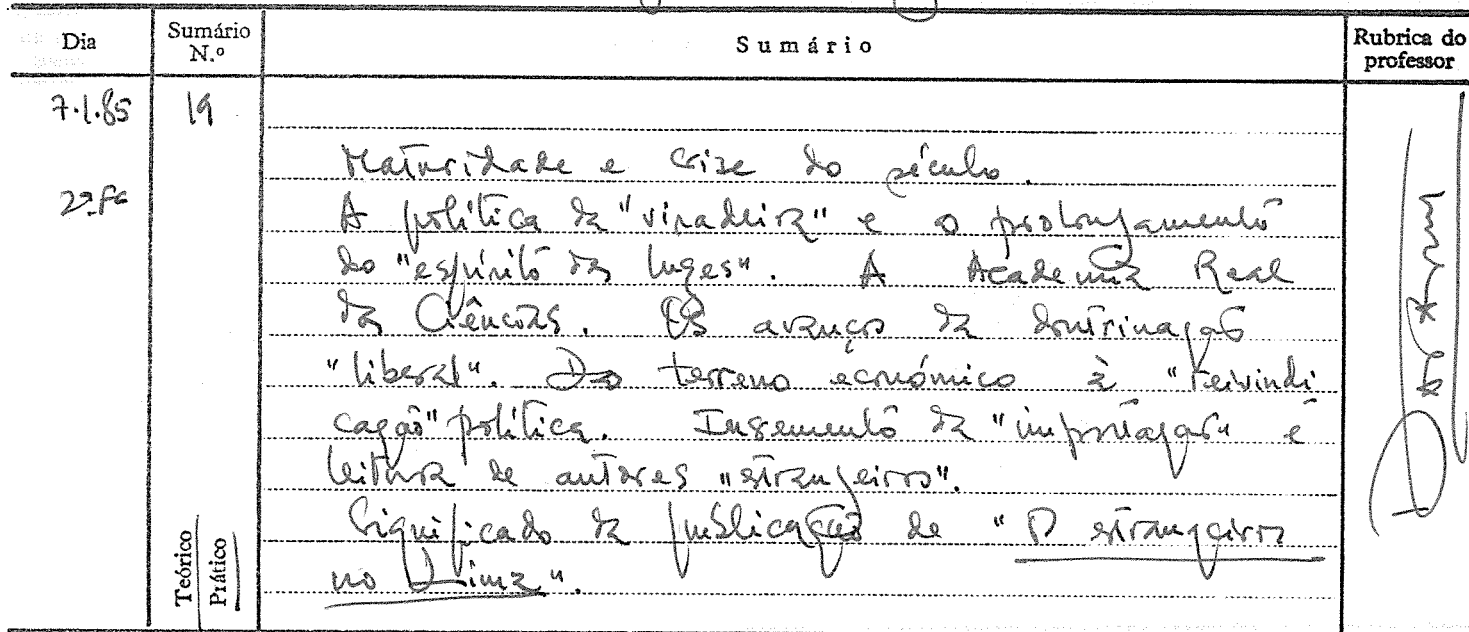 Dia Sumário N.º Sumário Rubrica do professor
7.1.85 19
Maturidade e crise do século.
2ª fª A política da "viradeira" e o prolongamento
do "espírito das luzes". A Academia Real
das Ciências. Os avanços da doutrinação
"liberal". Do terreno económico à "reivindi
cação" política. Incremento da "importação" e
leitura de autores "estrangeiros".
Significado da publicação de "O estrangeiro
no Lima".
Teórico
Prático